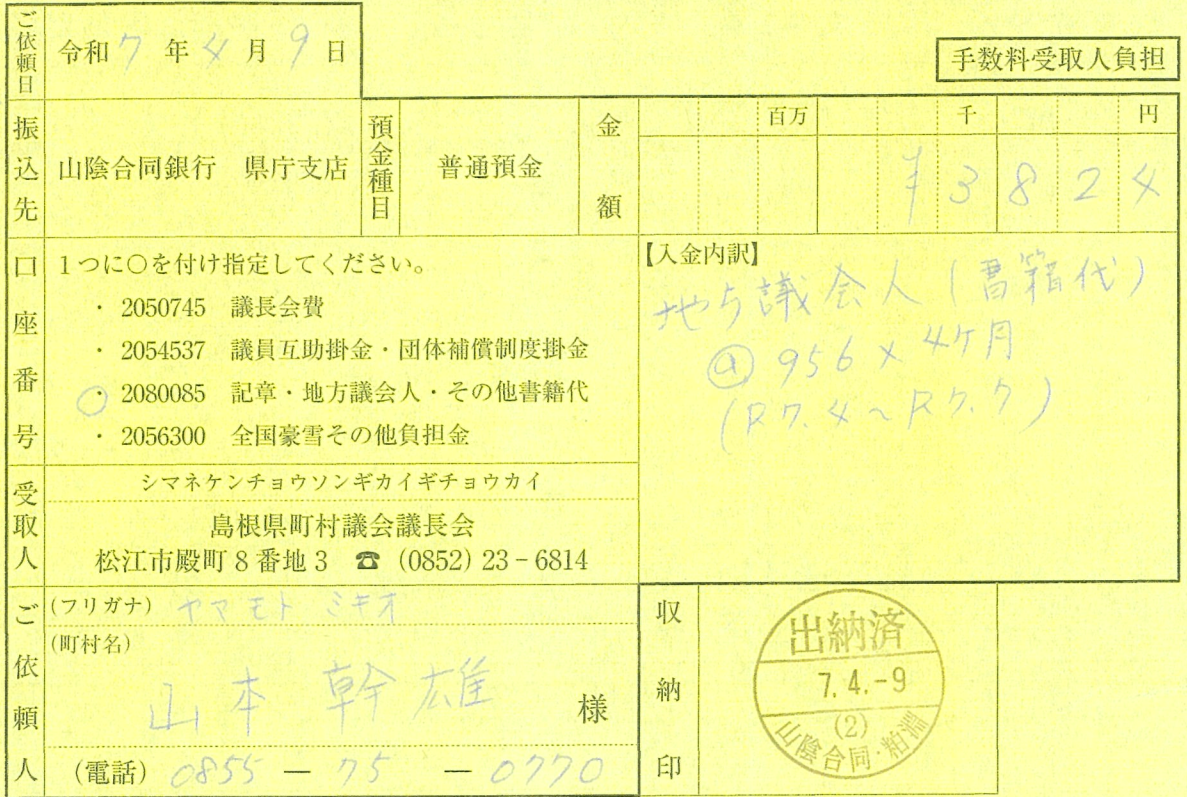 ご依頼日 令和7年4月9日
手数料受取人負担
振込先 山陰合同銀行 県庁支店 預金種目 普通預金 金額 百万 千 円
¥3824
口座番号 1つに○を付け指定してください。
・ 2050745 議長会費
・ 2054537 議員互助掛金・団体補償制度掛金
○・ 2080085 記章・地方議会人・その他書籍代
・ 2056300 全国豪雪その他負担金
【入金内訳】
地方議会人(書籍代)
@956×4ヶ月
(R7.4~R7.7)
受取人 シマネケンチョウソンギカイギチョウカイ
島根県町村議会議長会
松江市殿町8番地3 ☎ (0852) 23-6814
ご依頼人 (フリガナ) ヤマモト ミキオ
(町村名)
山本幹雄 様
(電話) 0855 ― 75 ― 0770
収納印
出納済
7.4.-9
(2)
山陰合同・粕淵